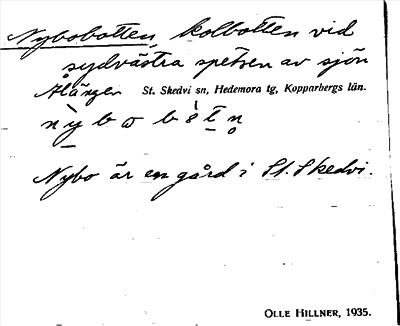 Nybobotten, kolbotten vid
sydvästra spetsen av sjön
Ålången St. Skedvi sn, Hedemora tg, Kopparbergs län.
Nybo är en gård i St. Skedvi.
OLLE HILLNER, 1935.